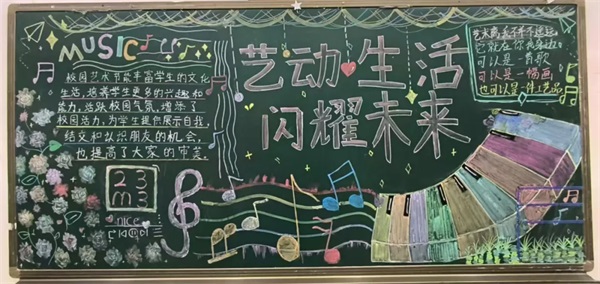 MUSIC
校园艺术节能丰富学生的文化
生活,培养学生更多的兴趣和
能力,活跃校园气氛,增添了
校园活力,为学生提供展示自我,
结交和认识朋友的机会,
也提高了大家的审美。
艺动生活
闪耀未来
艺术离我们并不遥远
它就在你我身边。
可以是一首歌
可以是一幅画
也可以是一件工艺品
nice